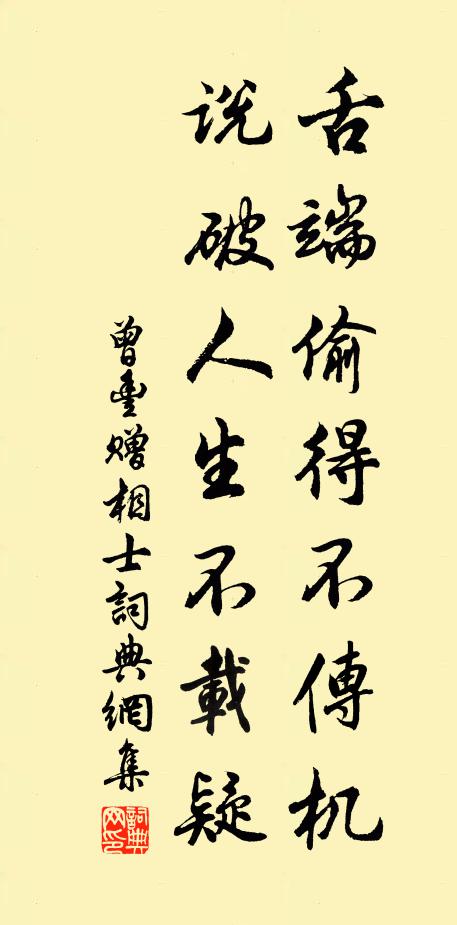 舌端偷得不傳机
説破人生不載疑
曾豊贈相士詞典網集
詞典网印